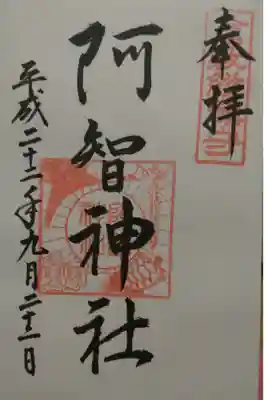 奉拝
阿智神社
平成二十二年九月二十二日